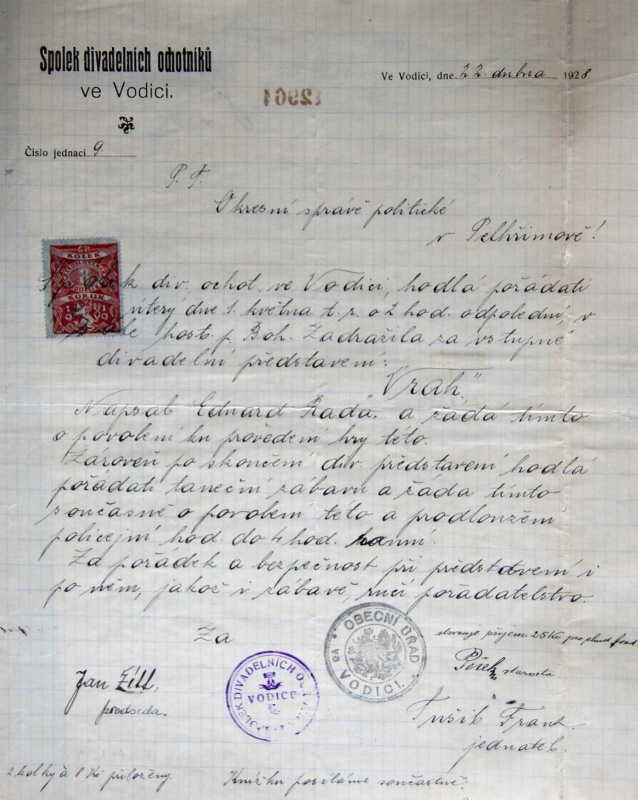 Spolek divadelních ochotníků
ve Vodici.
Ve Vodici, dne 22. dubna 1928.
Číslo jednací 9
P. T.
Okresní správě politické
v Pelhřimově!
KOLEK
KORUN
div. ochot. ve Vodici, hodlá pořádati
úterý dne 1. května t. r. o 2 hod. odpolední, v
host. p. Boh. Zadražila za vstupné
divadelní představení:
"Vrah"
Napsal Eduard Rada, a žádá tímto
o povolení ku provedení hry této.
Zároveň po skončení div. představení hodlá
pořádati taneční zábavu a žáda tímto
současně o povolení této a prodloužení
policejní hod. do 4 hod. ranní.
Za pořádek a bezpečnost při představení i
po něm, jakož i zábavě, ručí pořadatelstvo.
Za
OBECNÍ ÚŘAD VE VODICI.
SPOLEK DIVADELNÍCH
VODICE
stvrzuje příjem 25 Kč pro chud. fond.
Pešek, starosta
Jan Zítt,
předseda.
Tušil Frant.
jednatel.
2 kolky à 8 Kč přiloženy.
Knížku posíláme současně.